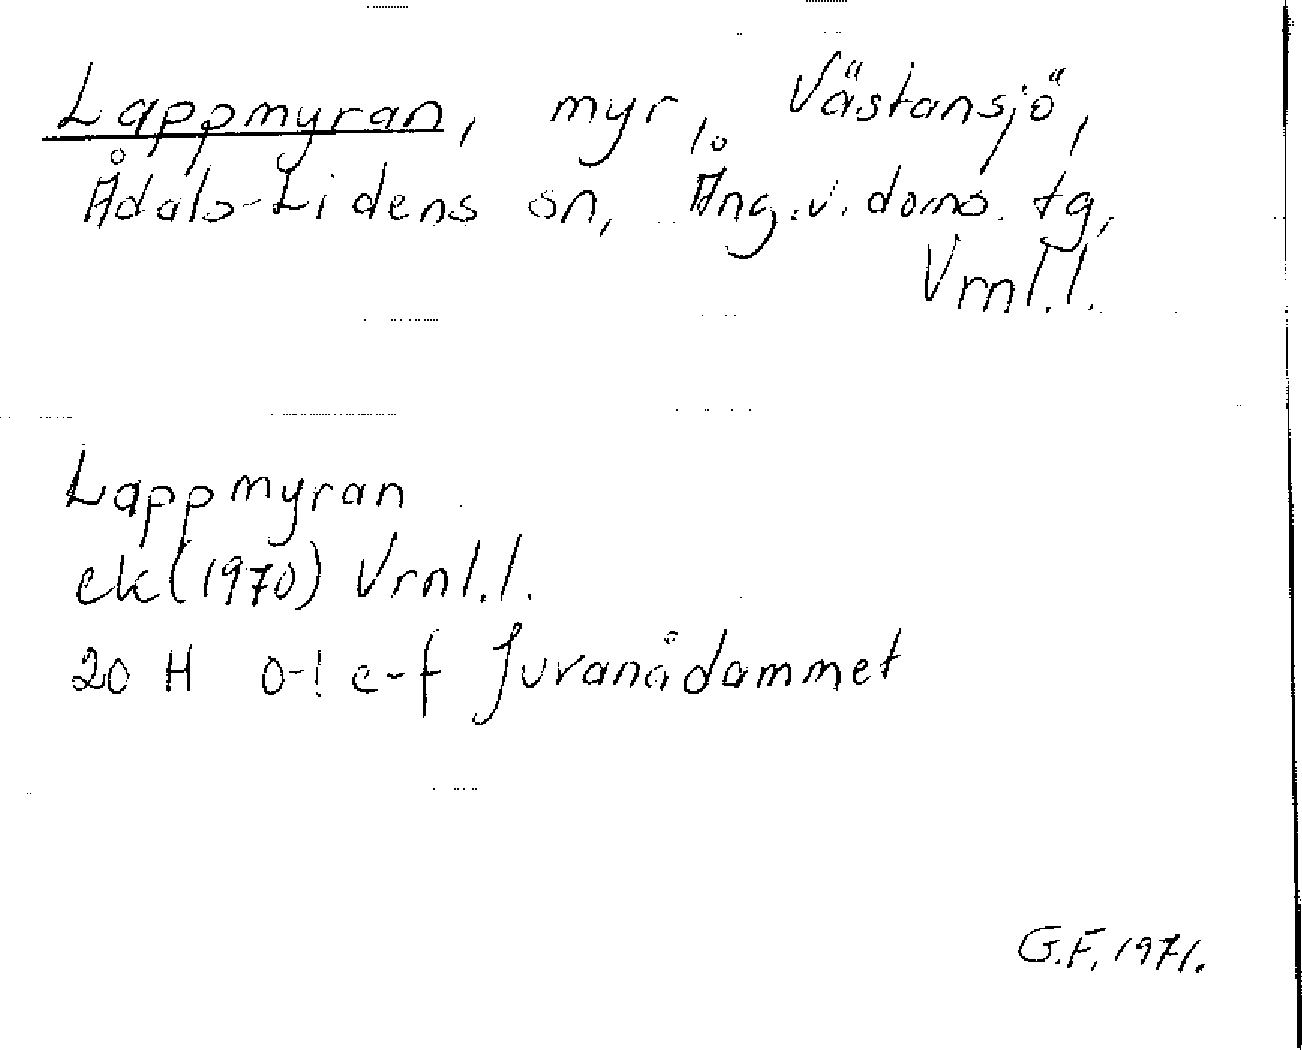 Lappmyran, myr, Västansjö,
Ådals-Lidens sn, Ång.v.doms. tg,
Vrnl.l.
Lappmyran
ek (1970) Vrnl.l.
20 H 0-1 e-f Juranådammet
G.F. 1971.